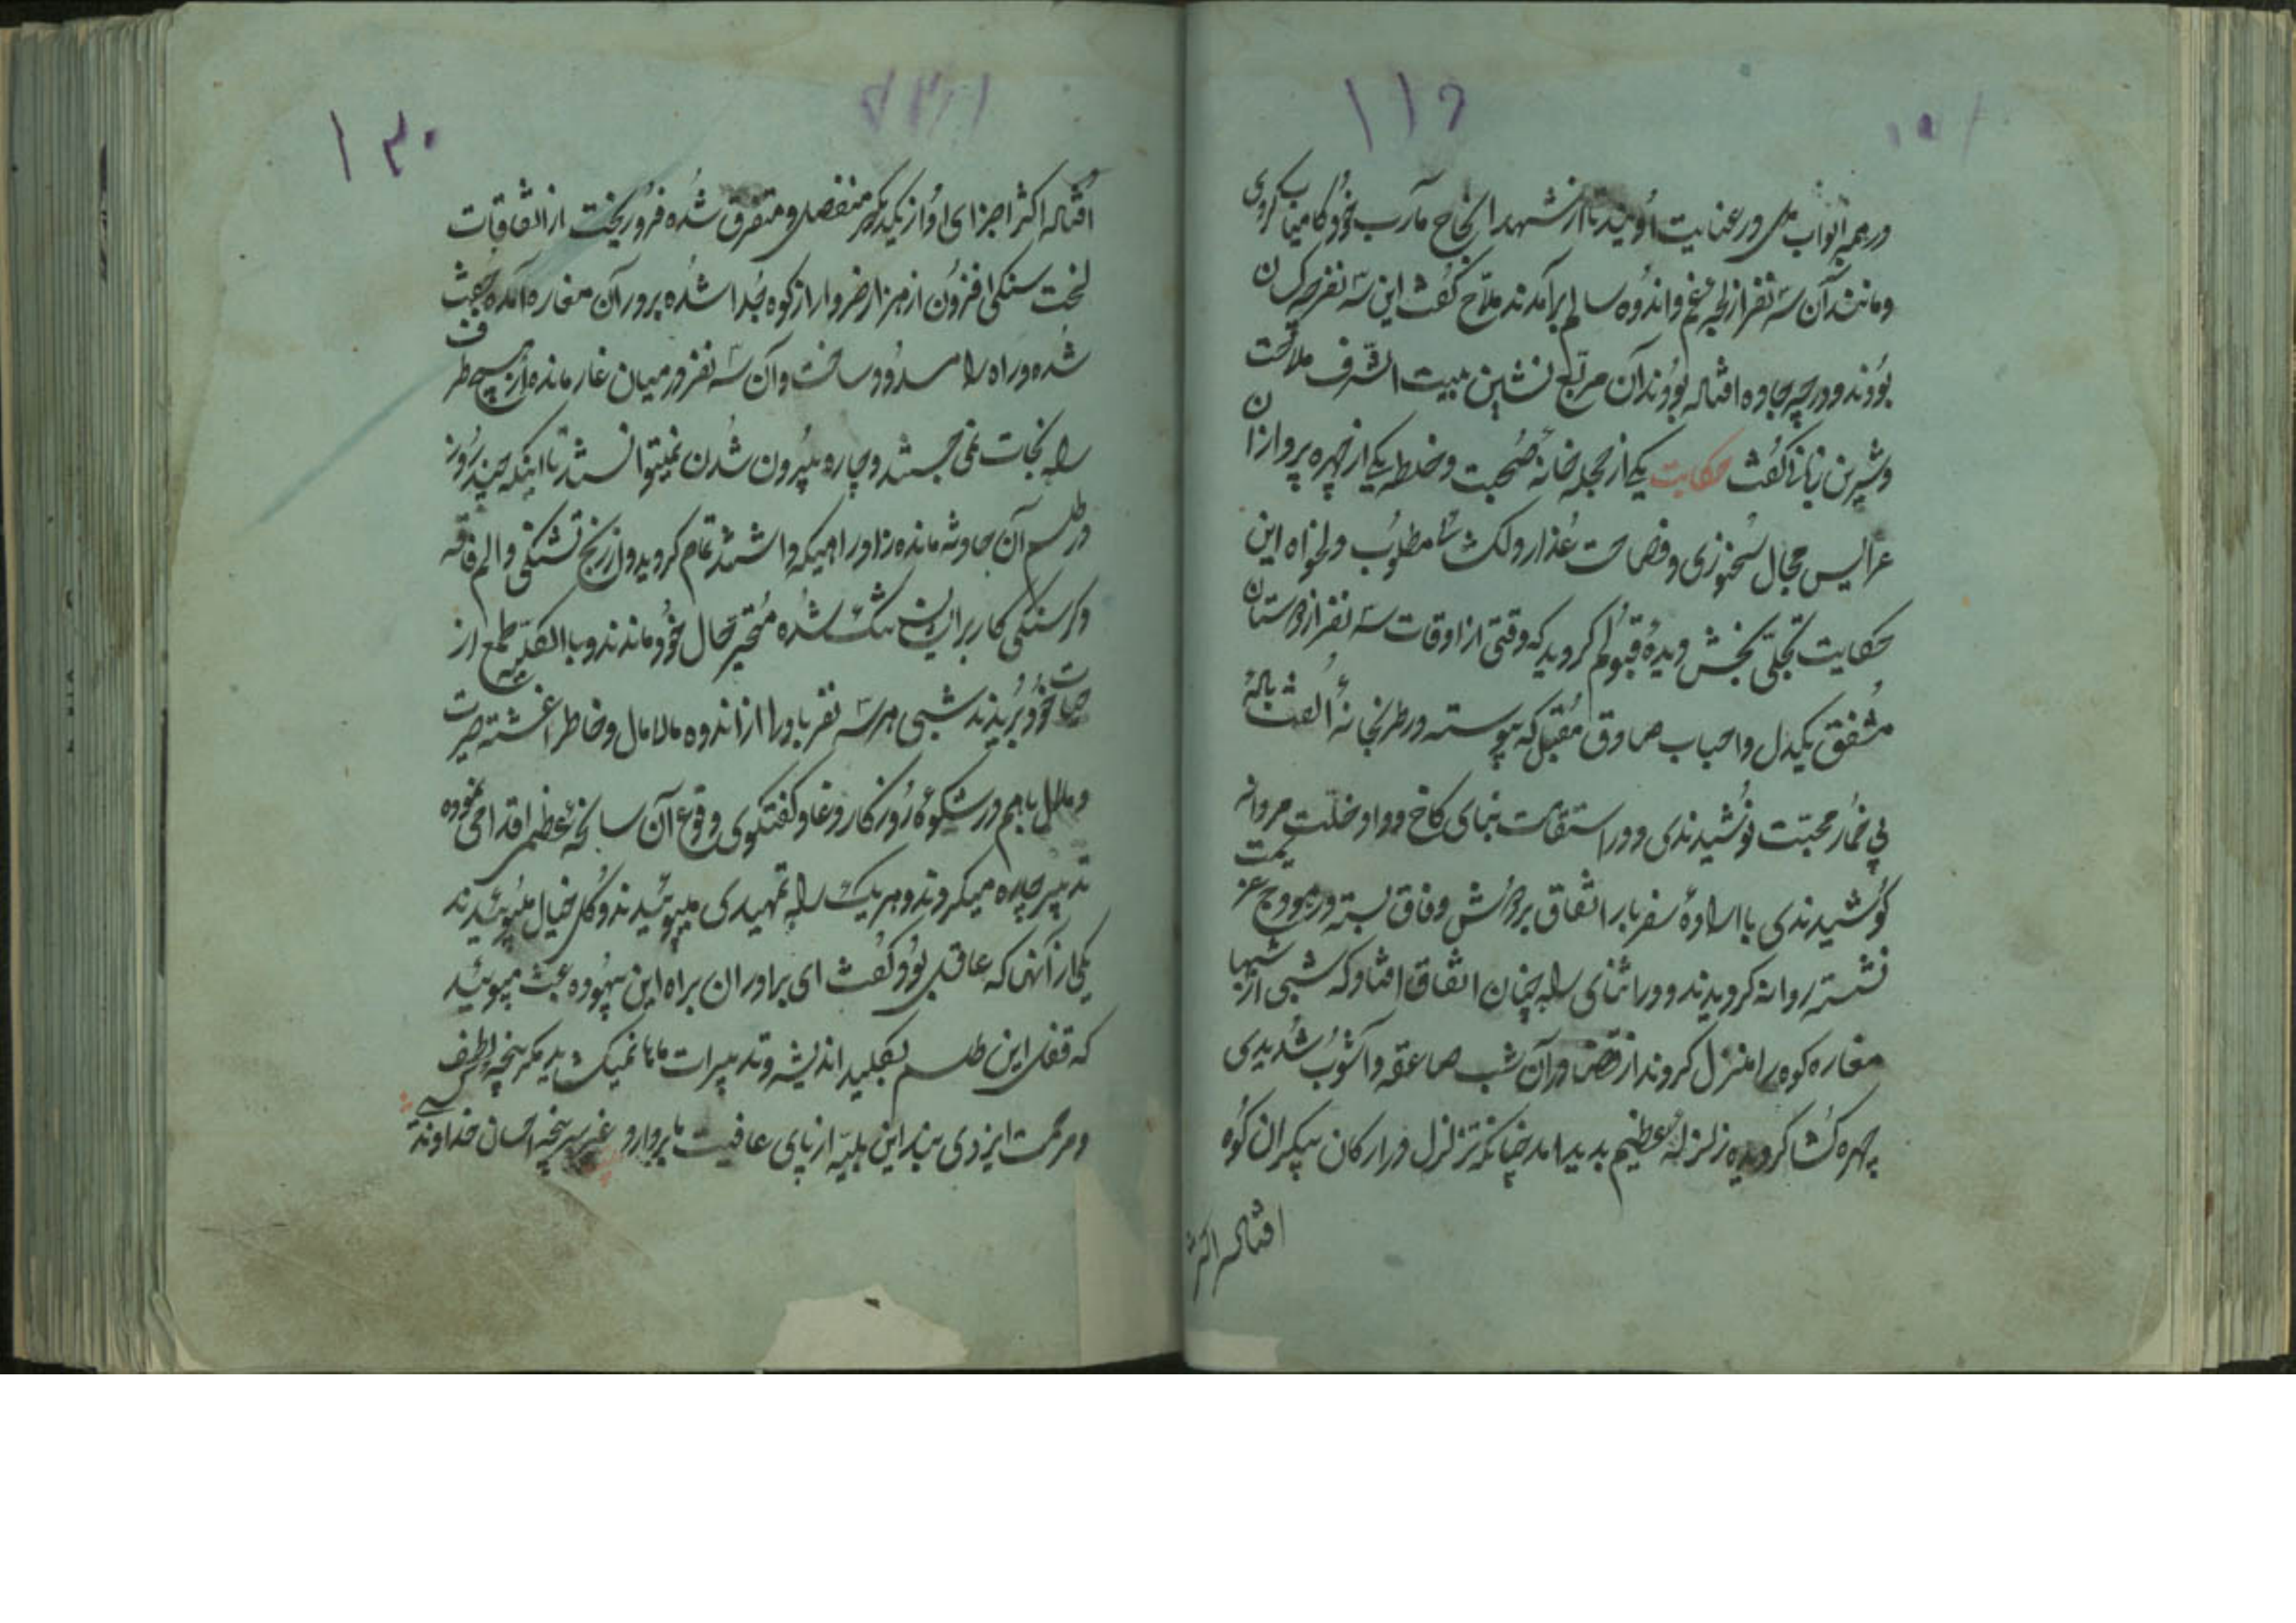 ۱۱۹
در همه ابواب در عنایت او بند تا از شهد انجاح مآرب خود کامیاب کردی
و مانند آن سه نفر از لجه غم و اندوه سالم برآمدند ملاح گفت این سه نفر چه کسان
بودند و در چه جا وه افتاله بودند آن مربع نشین بیت الشرف ملاحت
و شیرین زبانی گفت حکایت یکی از حجله خانه صحبت و خلطه یکی از چهره پردازان
عرایس حجال سخنوری و فصاحت عذار دلکشا مطلوب دلخواه این
حکایت تجلی بخش دیده قبولم کردید که وقتی از اوقات سه نفر از دوستان
مشفق یکدل و احباب صادق مقبل که پیوسته در طربخانه الفت باله
بی خمار محبت نوشیدندی و در استقامت بنای کاخ وداد و خلت مردانه
کوشیدندی با اراده سفر بار اتفاق بر دوش وفاق بسته در هودج عزیمت
نشسته روانه کردیدند و در اثنای راه چنان اتفاق افتاد که شبی از شبها
مغاره کوه را منزل کردند از قضا در آن شب صاعقه و آشوب شدیدی
چهره کشا کردیده زلزله عظیم بدید امد چنانکه تزلزل در ارکان پیکران کوه
افتاله اکثر
۱۲۰
افتاله اکثر اجزای او از یکدیکر منفصل و متفرق شده فرو ریخت از اتفاقات
لخت سنکی افزون از هزار خروار از کوه جدا شده بر در آن مغاره آمده جفت
شده و راه را مسدود ساخت و آن سه نفر در میان غار مانده از هیچ طرف
راه نجات نمی جستند و چاره بیرون شدن نمیتوانستند تا اینکه چند روز
در طلسم آن حادثه مانده زاد راهیکه داشتند تمام کردید و از رنج تشنکی و الم فاقه
و کرسنکی کار بر ایشان تنک شده متحیر بحال خود ماندند و بالکلیه طمع از
حیات خود بریدند شبی هر سه نفر با دل از اندوه مالامال و خاطر اغشته حیرت
و ملال باهم در شکوه روزکار دغا و کفتکوی وقوع آن سانحه عظمی اقدامی نموده
تدبیر چاره میکردند و هر یک راه تمهیدی میپوئیدند و کل خیال میبوئیدند
یکی از آنها که عاقل بود کفت ای برادران براه این بیهوده عبث میپوئید
که قفل این طلسم بکلید اندیشه و تدبیرات ماها نمیکشاید مکر پنجه لطف
و مرحمت ایزدی بند این بلیه از پای عافیت ما بردارد و غیر سر پنجه احسان خداوند